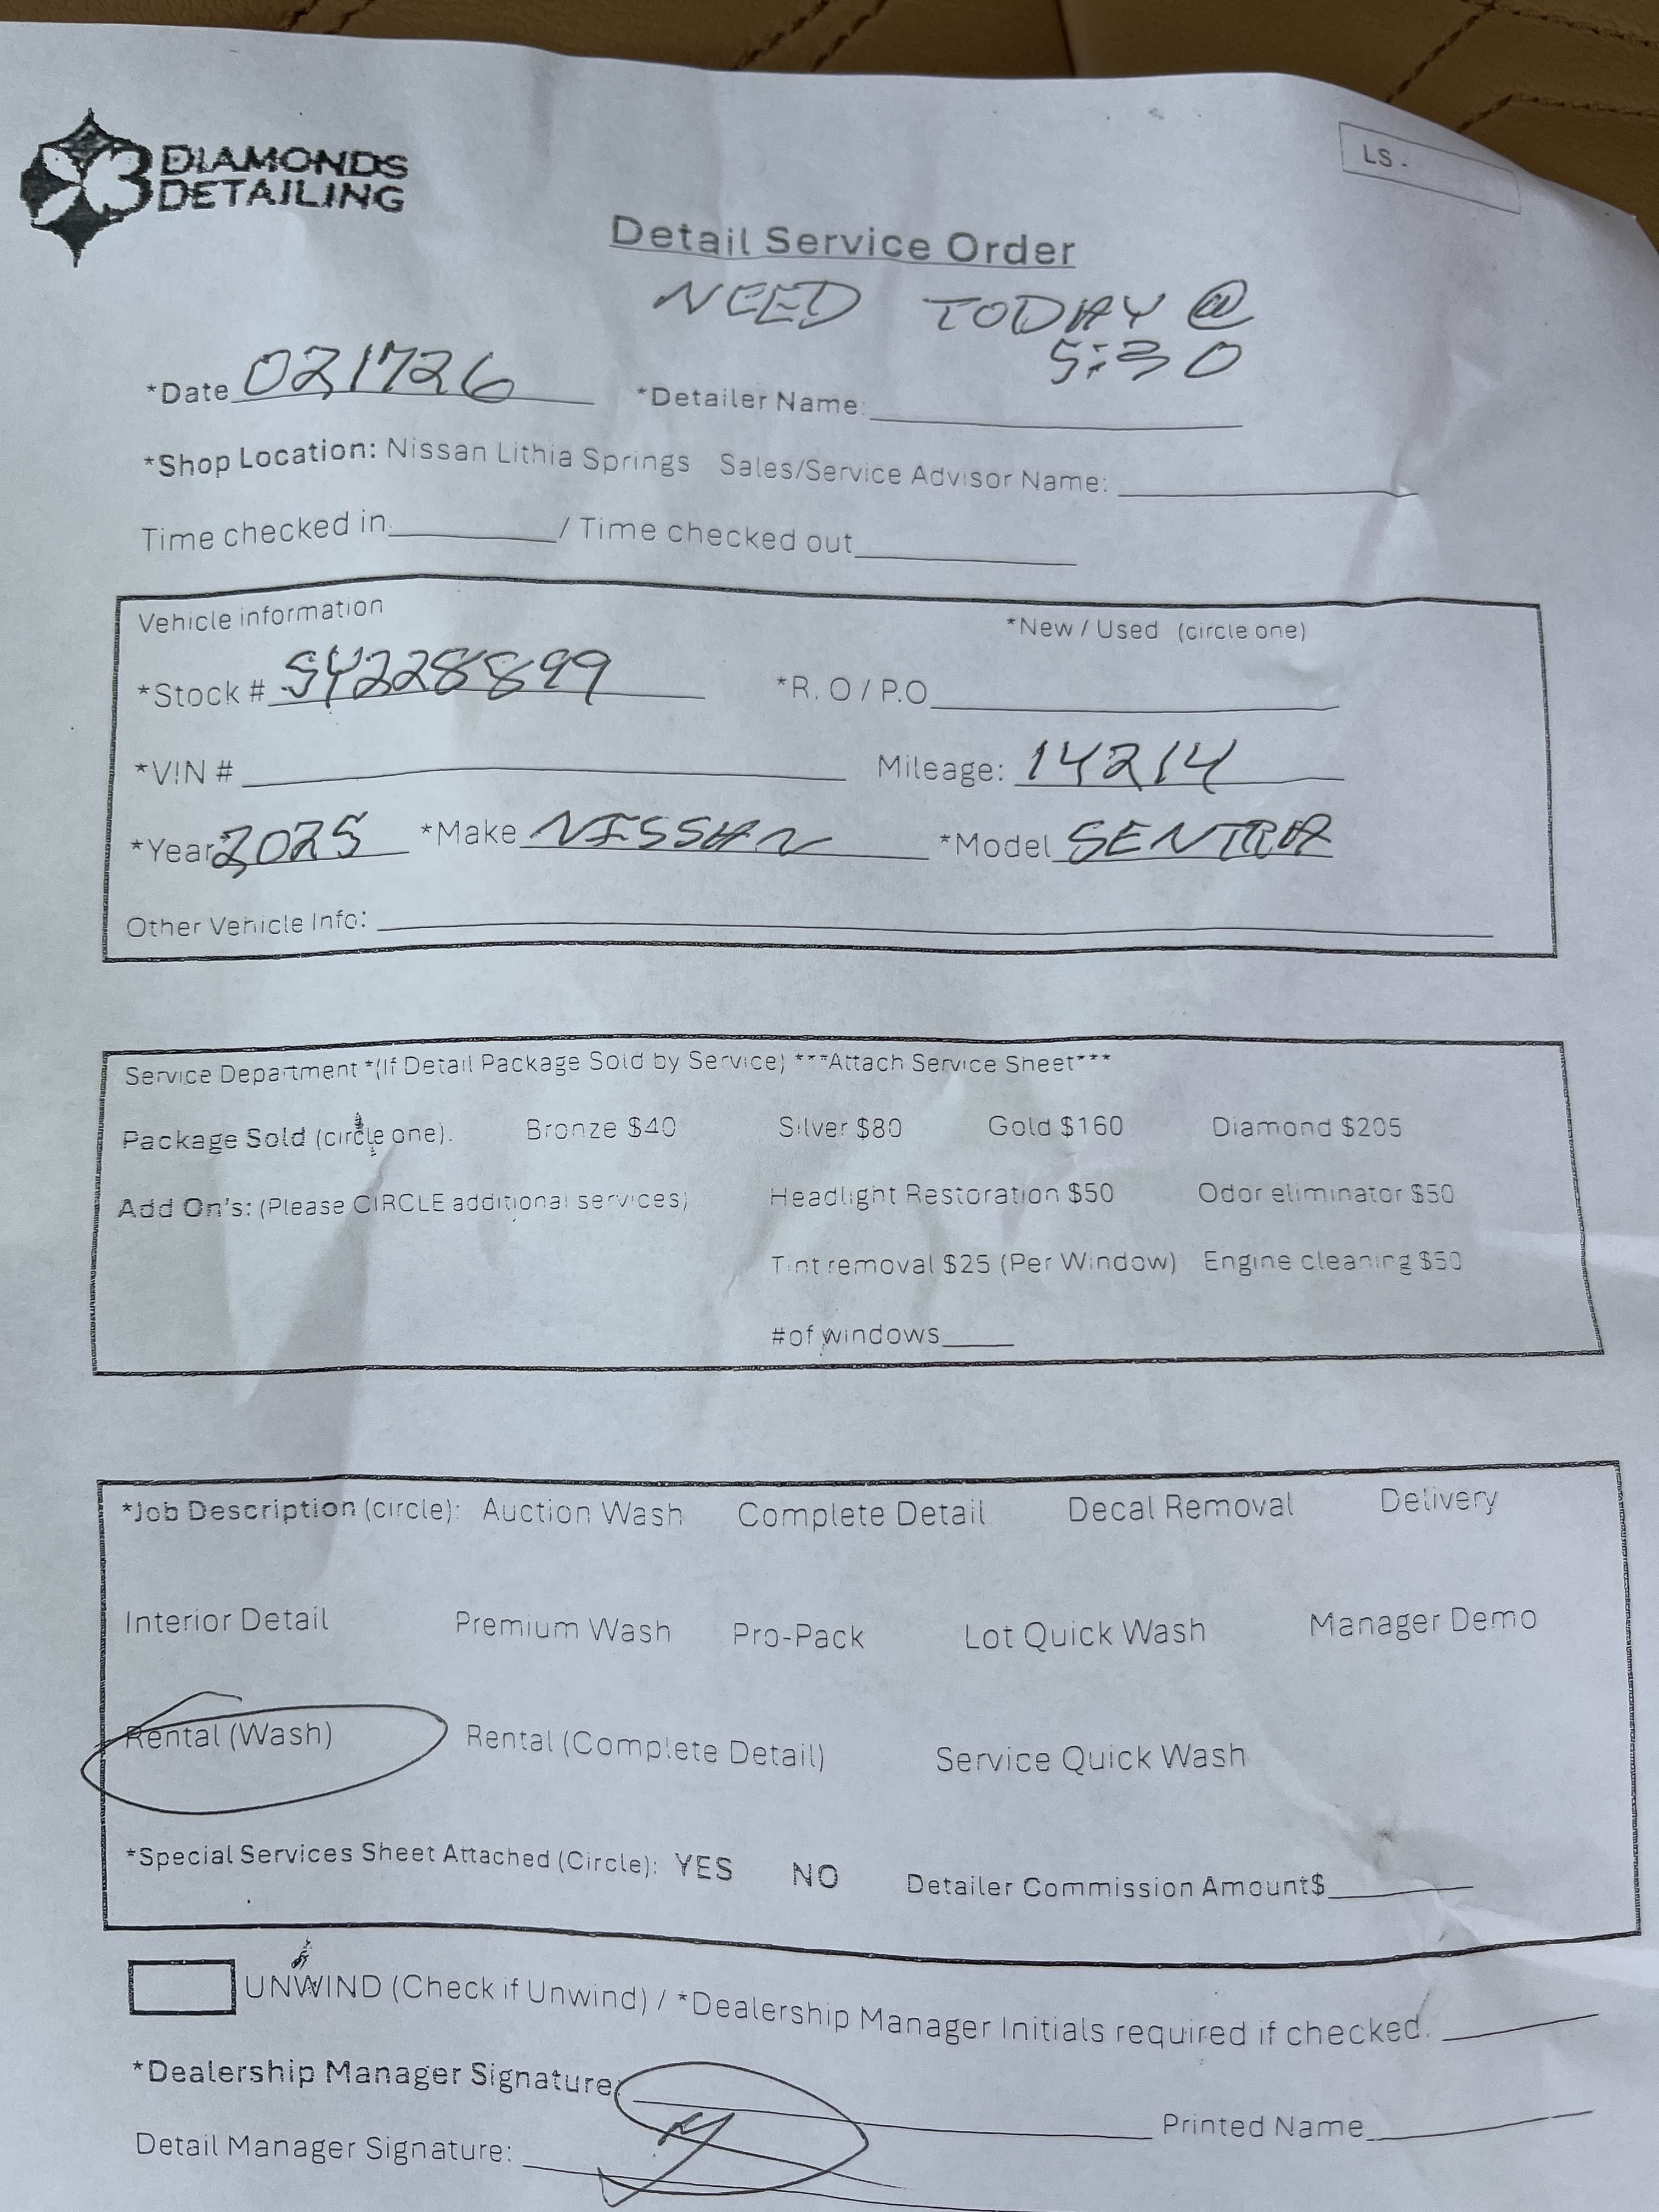 3 DIAMONDS
DETAILING
LS -
Detail Service Order
NEED TODAY @
5:30
*Date 021726 *Detailer Name:
*Shop Location: Nissan Lithia Springs Sales/Service Advisor Name:
Time checked in / Time checked out
Vehicle information
*New / Used (circle one)
*Stock # SY228899 *R.O / P.O
*VIN # Mileage: 14214
*Year 2025 *Make NISSAN *Model SENTRA
Other Vehicle Info:
Service Department *(If Detail Package Sold by Service) ***Attach Service Sheet***
Package Sold (circle one). Bronze $40 Silver $80 Gold $160 Diamond $205
Add On's: (Please CIRCLE additional services) Headlight Restoration $50 Odor eliminator $50
Tint removal $25 (Per Window) Engine cleaning $50
# of windows
*Job Description (circle): Auction Wash Complete Detail Decal Removal Delivery
Interior Detail Premium Wash Pro-Pack Lot Quick Wash Manager Demo
Rental (Wash) Rental (Complete Detail) Service Quick Wash
*Special Services Sheet Attached (Circle): YES NO Detailer Commission Amount$
UNWIND (Check if Unwind) / *Dealership Manager Initials required if checked.
*Dealership Manager Signature: Printed Name
Detail Manager Signature: